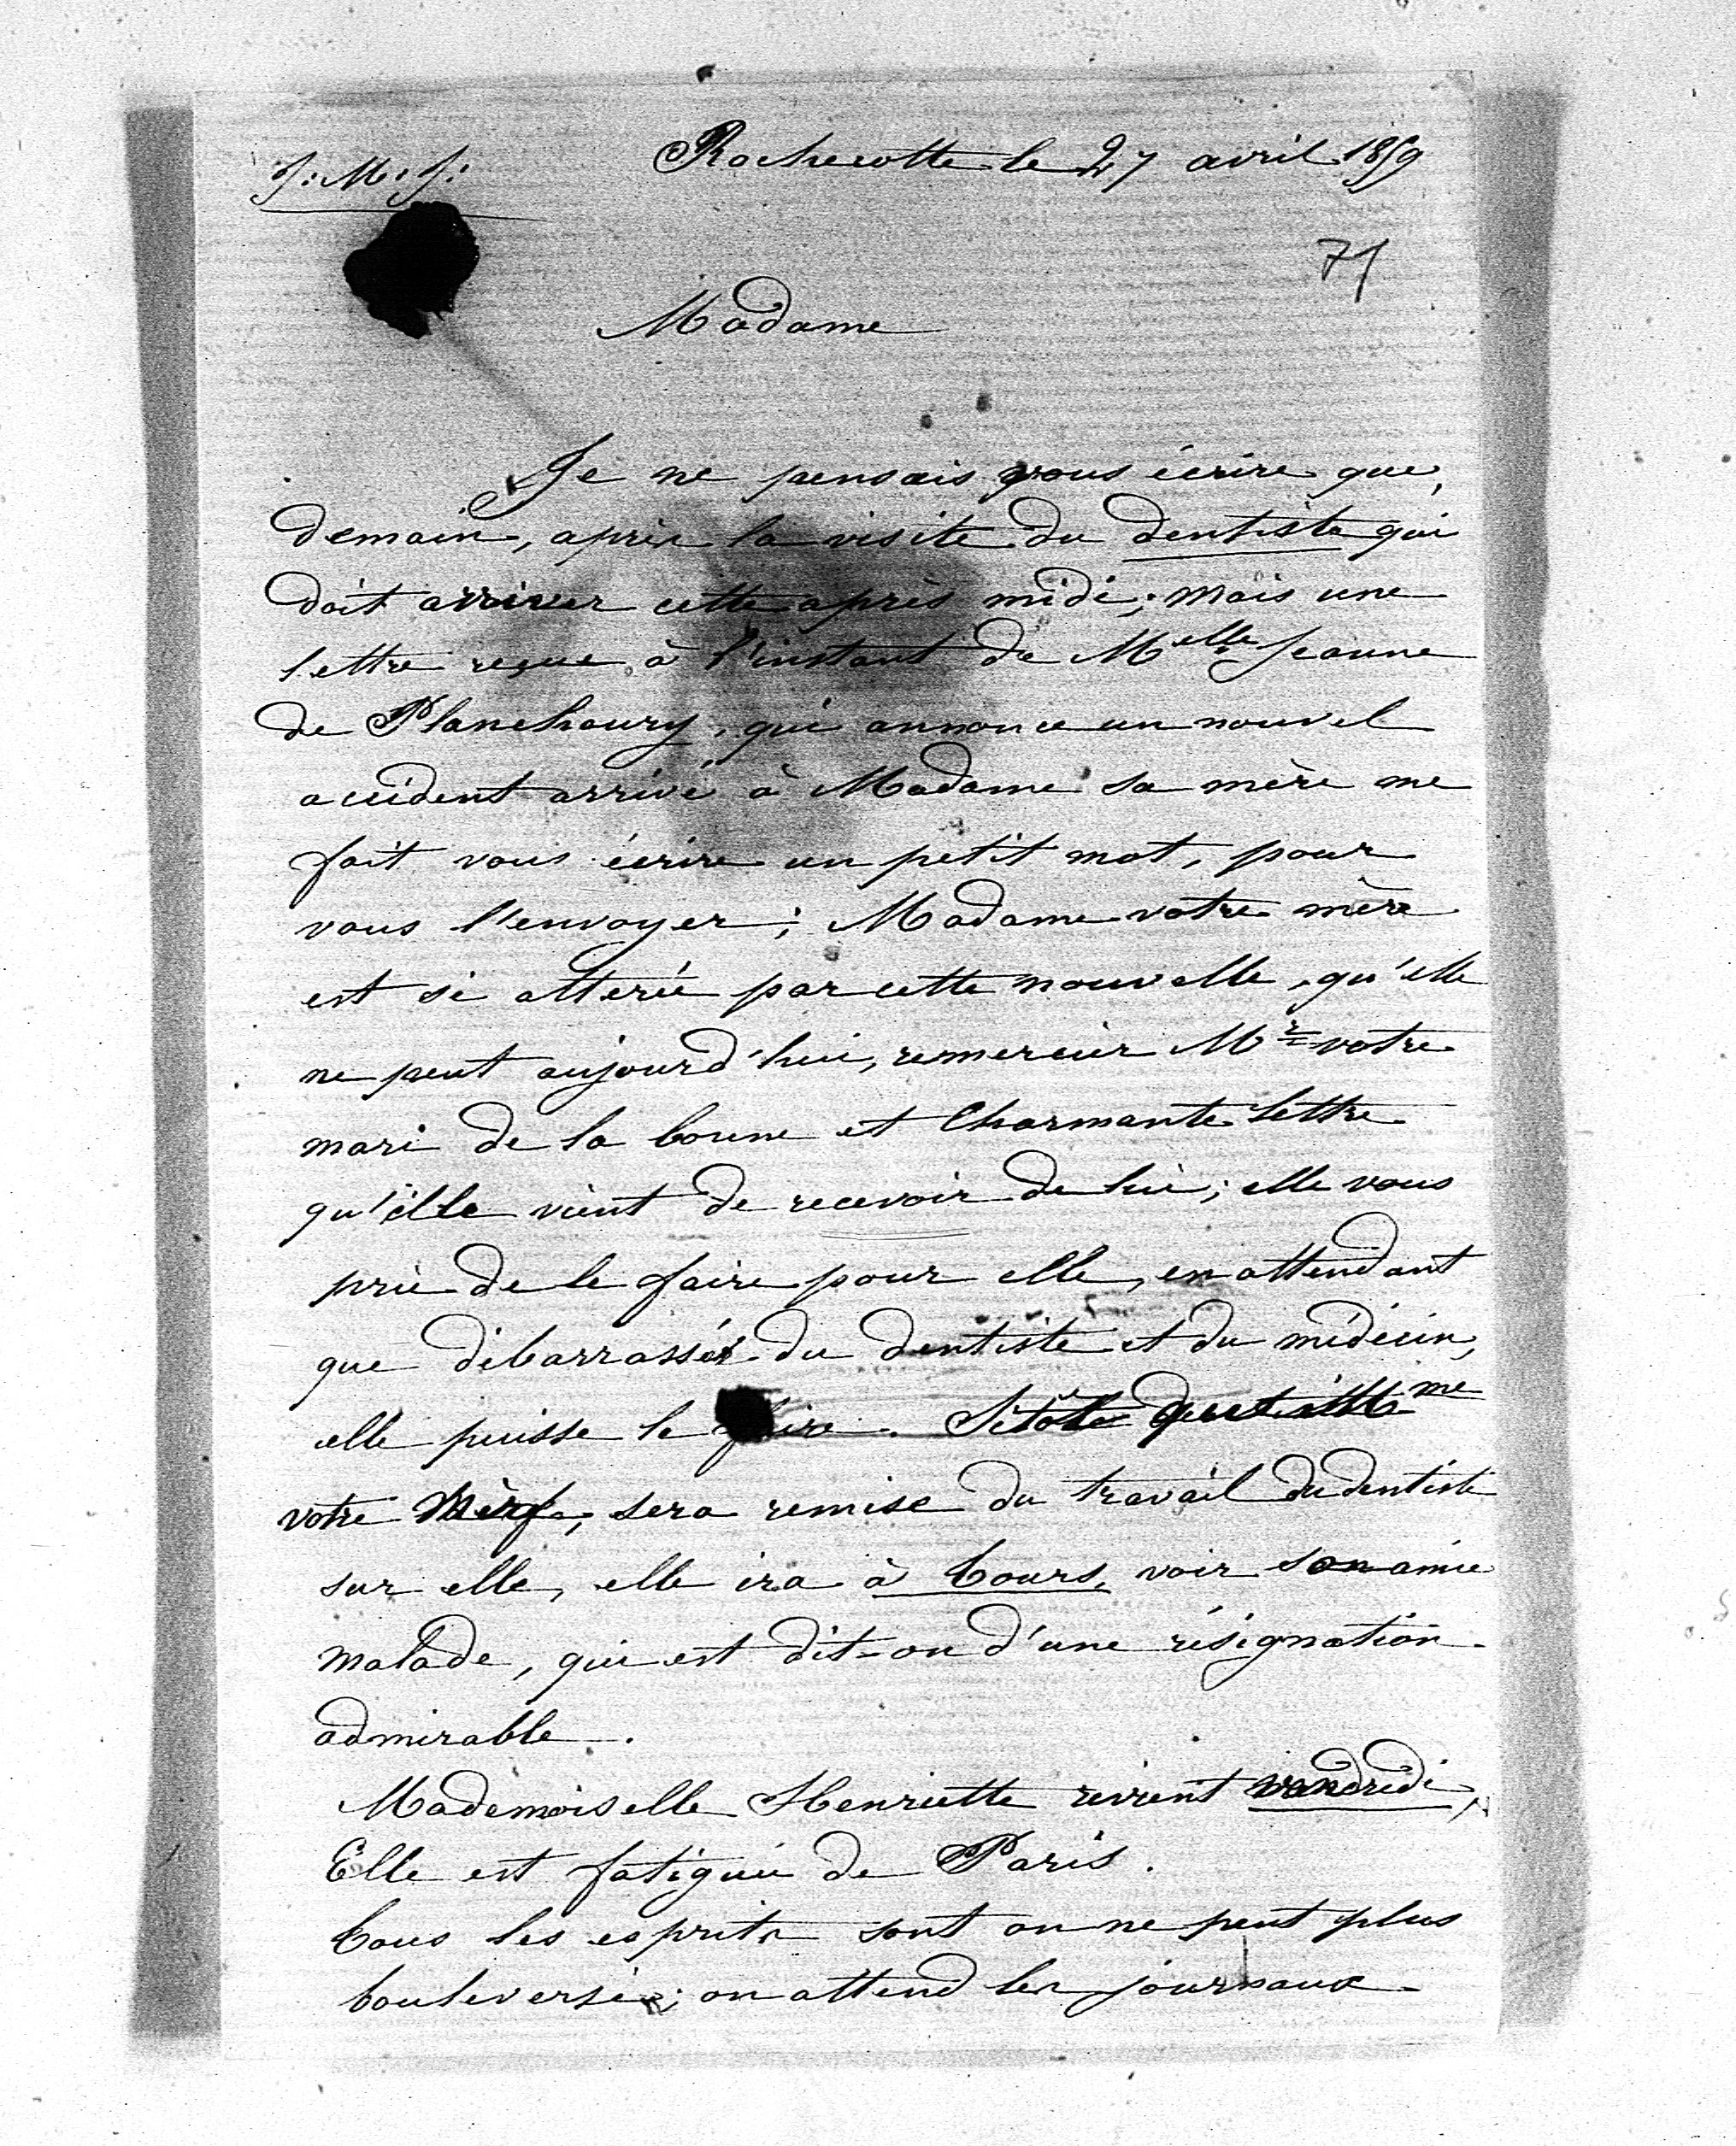 J: M: J:
Rochecotte le 27 avril 1859
71
Madame
Je ne pensais vous écrire que,
demain, après la visite du dentiste qui
doit arriver cette après midi; mais une
lettre reçue à l'instant de Melle Jeanne
de Planchoury, qui annonce un nouvel
accident arrivé à Madame sa mère me
fait vous écrire un petit mot, pour
vous l'envoyer; Madame votre mère
est si atterée par cette nouvelle, qu'elle
ne peut aujourd'hui, remercier Mr votre
mari de la bonne et Charmante lettre
qu'elle vient de recevoir de lui; elle vous
prie de le faire pour elle, en attendant
que débarrassée du dentiste et du médecin,
elle puisse le faire. Sitôt que Mme
votre Mère, sera remise du travail du dentiste
sur elle, elle ira à Tours, voir son amie
malade, qui est dit-on d'une résignation
admirable.
Mademoiselle Henriette revient vendredi,
Elle est fatiguée de Paris.
Tous les esprits sont on ne peut plus
bouleversés; on attend les journaux